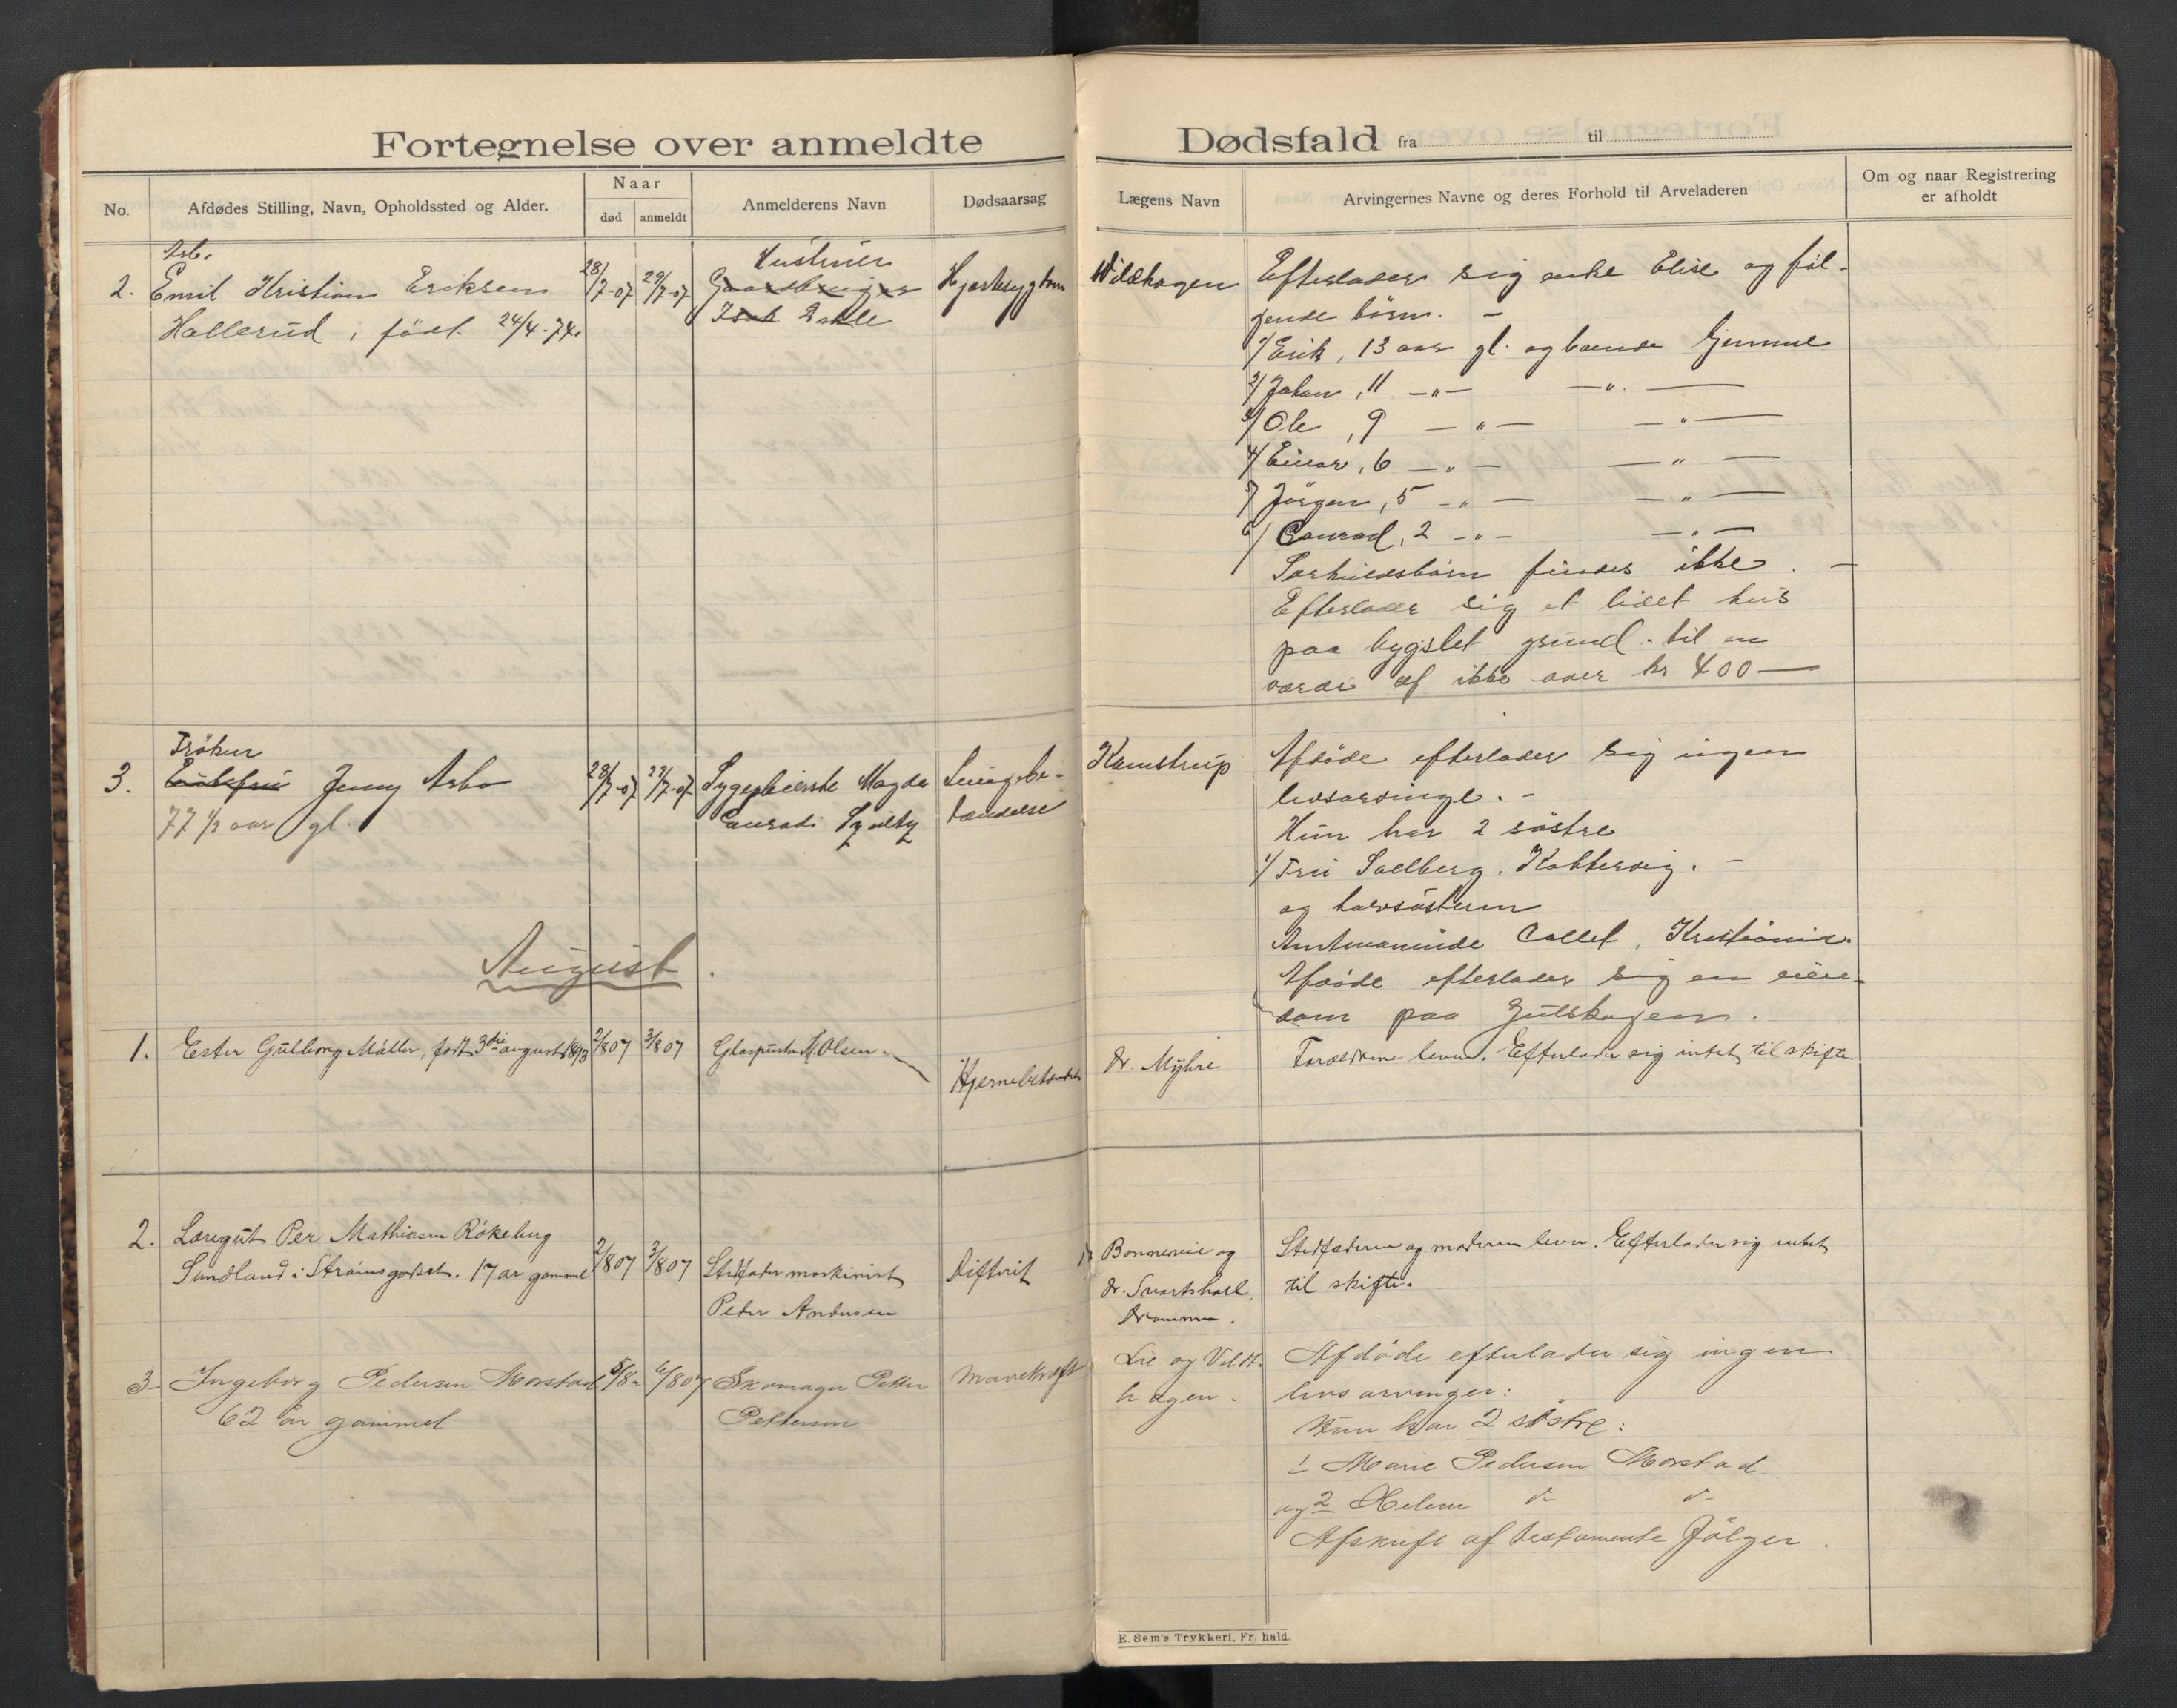 Fortegnelse over anmeldte
Dødsfald fra til
No.
Afdødes Stilling, Navn, Opholdssted og Alder.
Naar
død
anmeldt
Anmelderens Navn
Dødsaarsag
Lægens Navn
Arvingernes Navne og deres Forhold til Arveladeren
Om og naar Registrering
er afholdt
Arb.
2. Emil Kristian Eriksen
Hallerud, født 24/4-74.
28/7-07
29/7-07
Hustruen
Gaardbruger
Isak
Hjertesygdom
Wildhagen
Efterlader sig enke Elise og føl-
gende børn. -
1/ Erik, 13 aar gl. og boende hjemme
2/ Johan, 11 -"- -"-
3/ Ole, 9 -"- -"-
4/ Einar, 6 -"- -"-
5/ Jörgen, 5 -"- -"-
6/ Conrad, 2 -"- -"-
Særkuldsbörn findes ikke. -
Efterlader sig et lidet hus
paa bygslet grund - til en
værdi af ikke over kr 400 -
3.
Fröken
Enkefru Jenny Arbo
77 1/2 aar gl.
28/7-07
29/7-07
Sygepleierske Magda
Conradi
Lungebe-
tændelse
Kamstrup
Afdöde efterlader sig ingen
livsarvinge. -
Hun har 2 söstre
1/ Fru Sollberg, Kobbervig. -
og halvsösteren
Amtmaninde Collet, Kristiania.
Afdöde efterlader sig en eien-
dom paa Gulskogen.
August.
1. Ester Gulborg Möller, født 3die august 1893
2/8 07
3/8 07
Glaspuster M. Olsen
Hjernebetændelse
dr. Myhre
Forældrene lever. Efterlader sig intet til skifte.
2. Læregut Per Mathiasen Rökeberg
Sundland i Strömsgodset. 17 ar gammel
2/8 07
3/8 07
Stedfader maskinist
Peder Andersen
Difterit
dr Bonnevie og
dr. Svartshol,
Drammen.
Stedfaderen og moderen lever. Efterlader sig intet
til skifte.
3 Ingeborg Pedersen Morstad
62 år gammel
5/8 -
6/8 07
Skomager Petter
Pettersen
Mavekræft
Lie og Vildt-
hagen -
Afdöde efterlader sig ingen
livsarvinger:
Hun har 2 söstre:
1 Marie Pedersen Morstad
og 2 Helene do do
Afskrift af testamente fölger.
E. Sem's Trykkeri, Fr. hald.